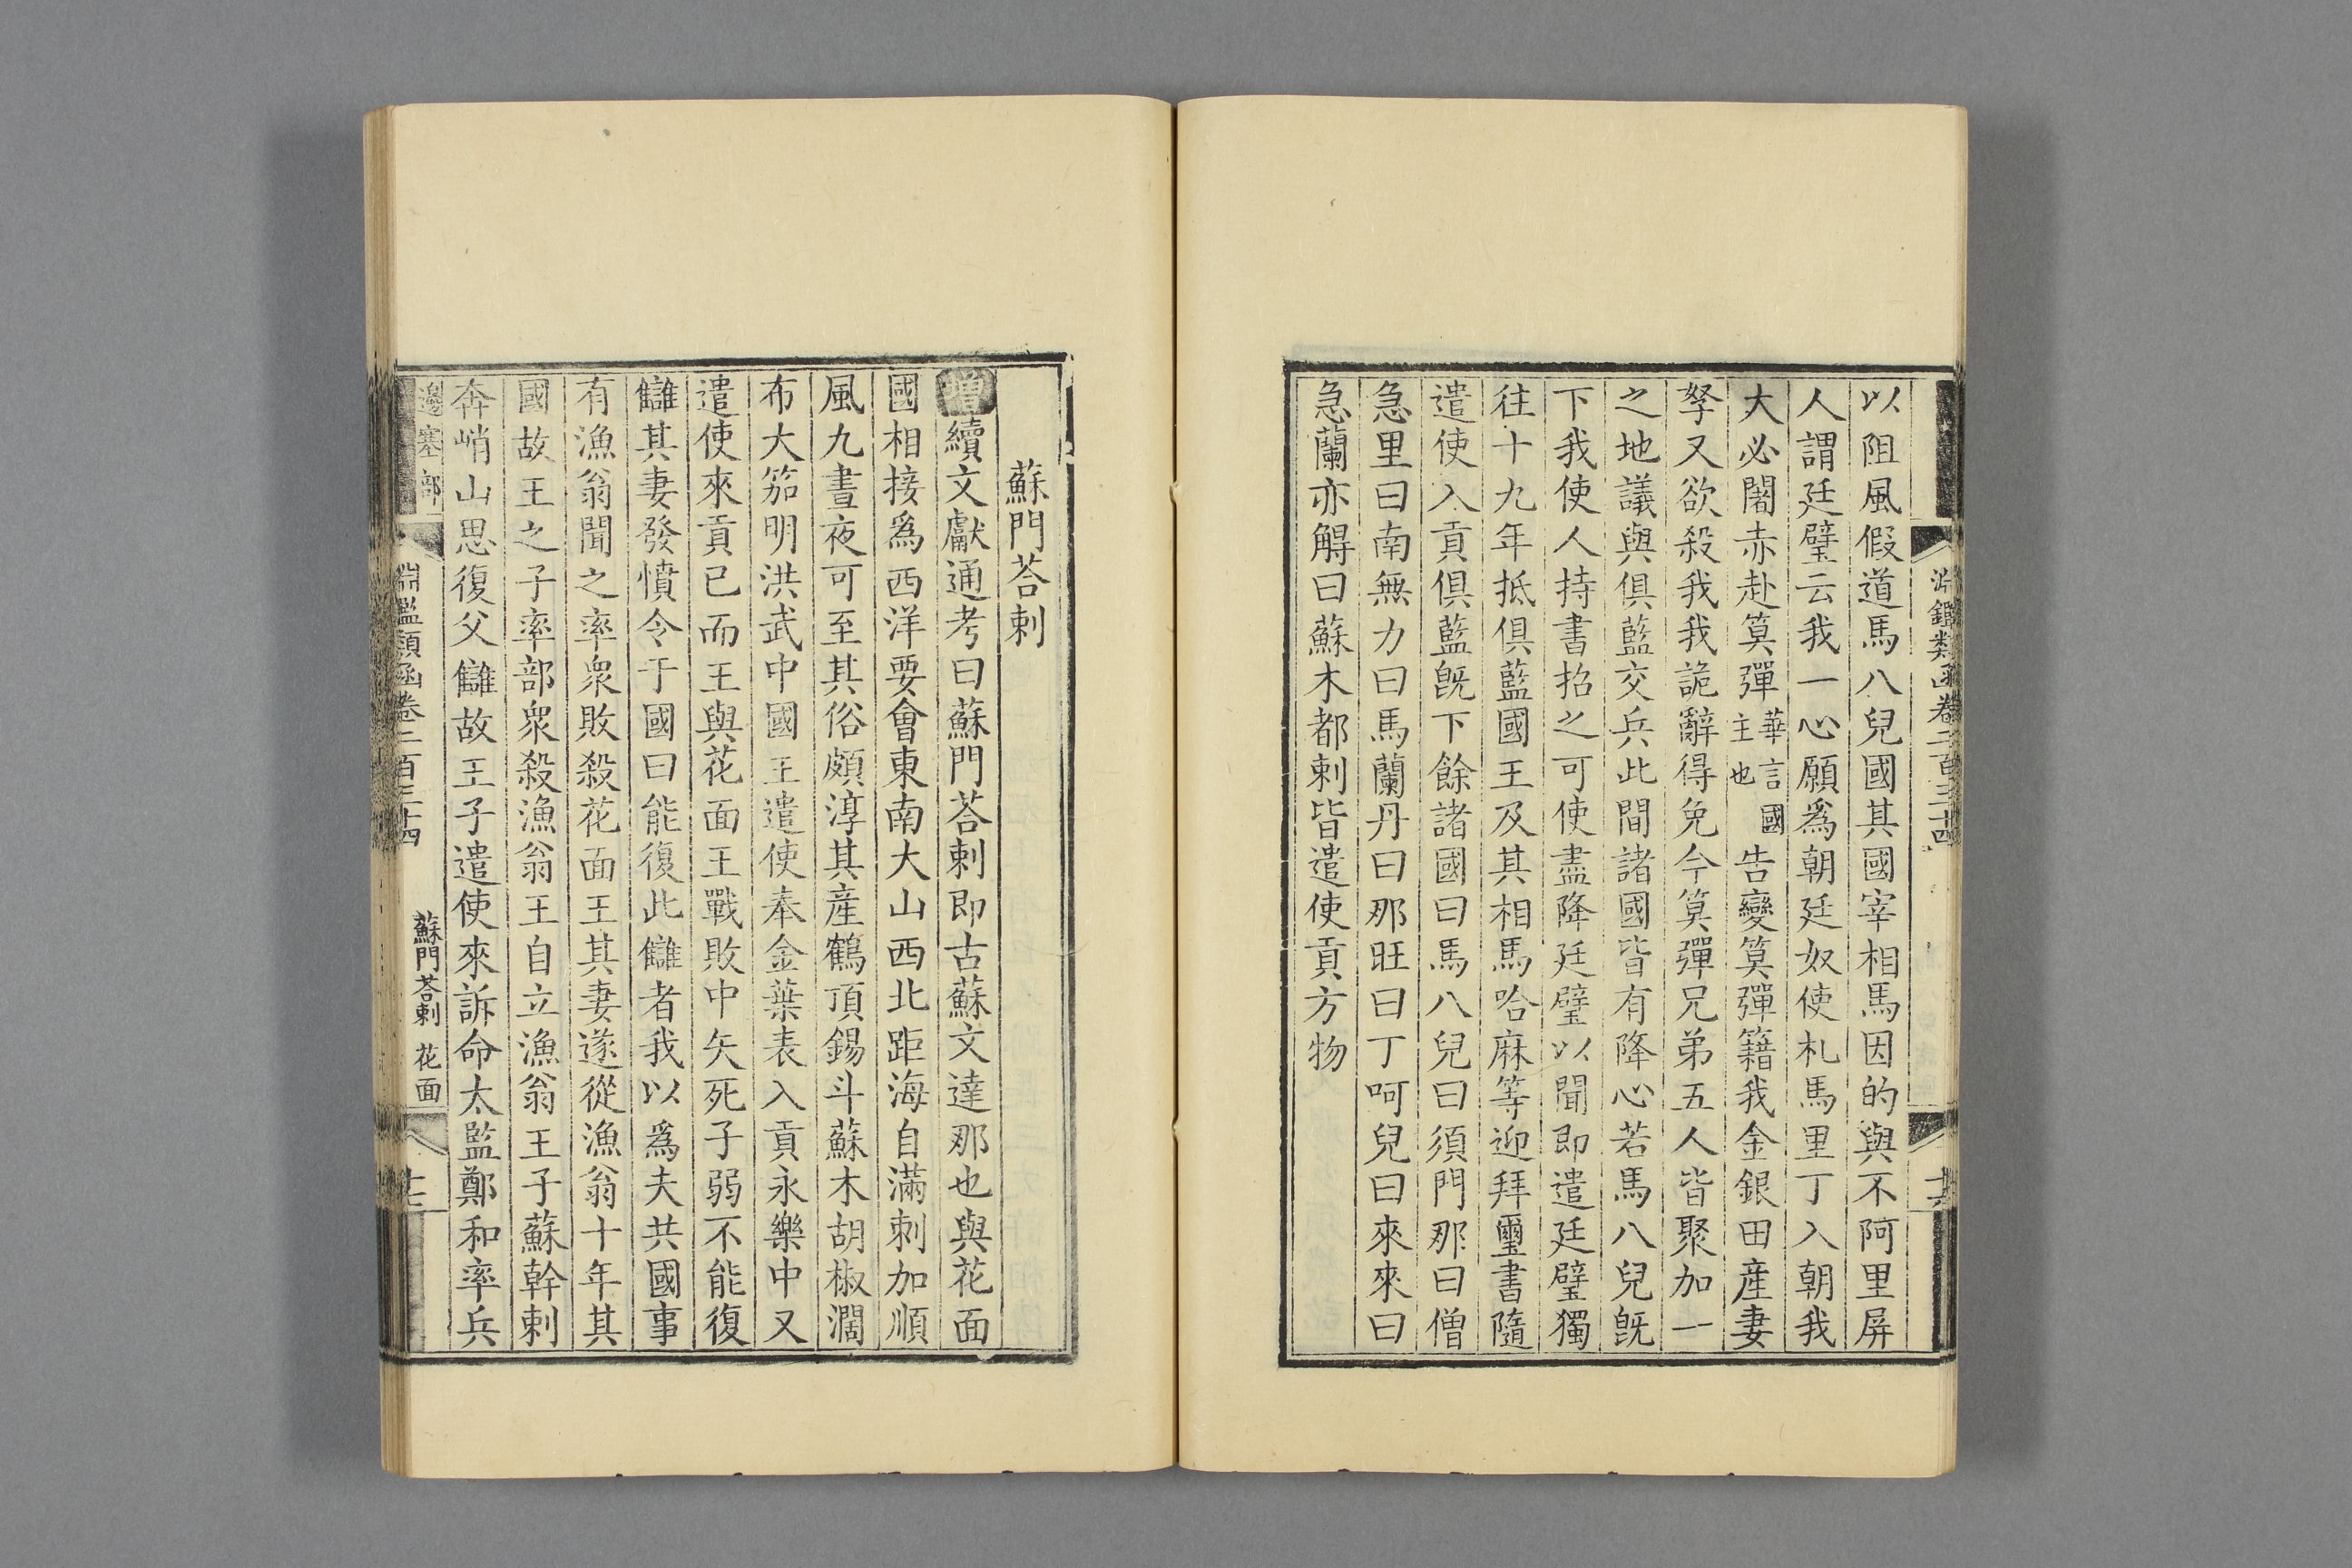 淵鑑類函卷二百三十四
以阻風假道馬八兒國其國宰相馬因的與不阿里屏
人謂廷璧云我一心願爲朝廷奴使札馬里丁入朝我
大必闍赤赴筭彈華言國主也告變筭彈籍我金銀田産妻
孥又欲殺我我詭辭得免今筭彈兄弟五人皆聚加一
之地議與俱藍交兵此間諸國皆有降心若馬八兒旣
下我使人持書招之可使盡降廷璧以聞即遣廷璧獨
往十九年抵俱藍國王及其相馬哈麻等迎拜璽書隨
遣使入貢俱藍旣下餘諸國曰馬八兒曰須門那曰僧
急里曰南無力曰馬蘭丹曰那旺曰丁呵兒曰來來曰
急蘭亦䚷曰蘇木都剌皆遣使貢方物
蘇門荅剌
增續文獻通考曰蘇門荅剌即古蘇文達那也與花面
國相接爲西洋要會東南大山西北距海自滿剌加順
風九晝夜可至其俗頗淳其産鶴頂錫斗蘇木胡椒濶
布大茄明洪武中國王遣使奉金葉表入貢永樂中又
遣使來貢已而王與花面王戰敗中矢死子弱不能復
讎其妻發憤令于國曰能復此讎者我以爲夫共國事
有漁翁聞之率衆敗殺花面王其妻遂從漁翁十年其
國故王之子率部衆殺漁翁王自立漁翁王子蘇幹剌
奔峭山思復父讎故王子遣使來訴命太監鄭和率兵
邊塞部
淵鑑類函卷二百三十四
蘇門荅剌 花面
十七